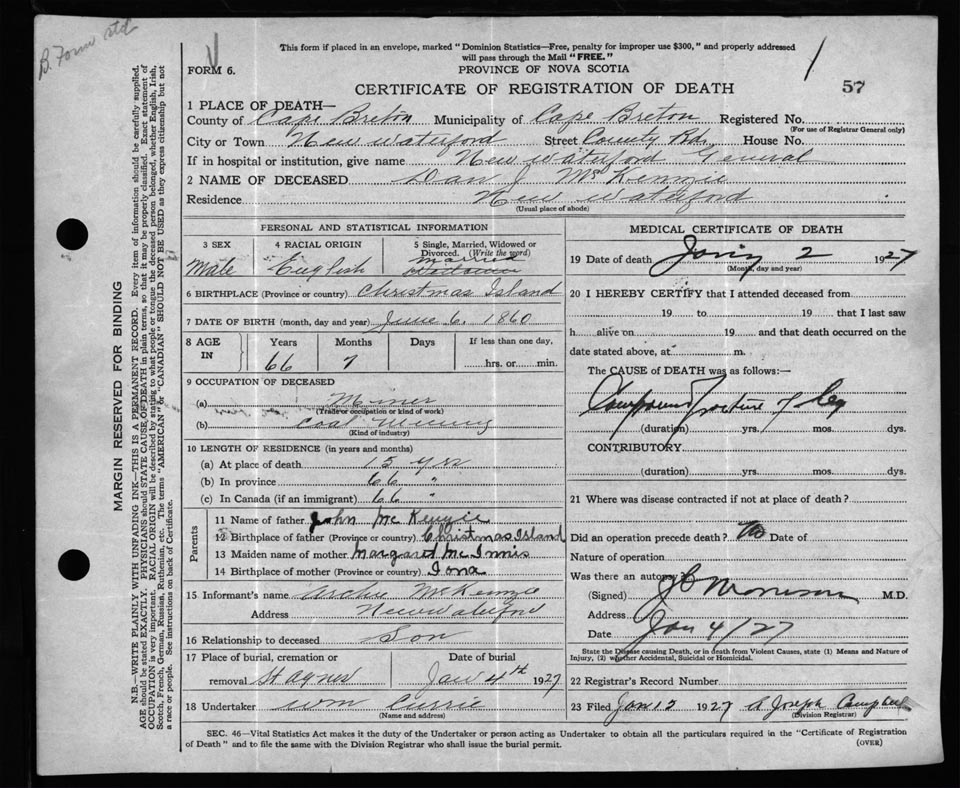 B. Form
This form if placed in an envelope, marked "Dominion Statistics—Free, penalty for improper use $300," and properly addressed
will pass through the Mail "FREE."
FORM 6.
PROVINCE OF NOVA SCOTIA
1
57
CERTIFICATE OF REGISTRATION OF DEATH
1 PLACE OF DEATH—
County of Cape Breton Municipality of Cape Breton Registered No.
(For use of Registrar General only)
City or Town New Waterford Street County Rd. House No.
If in hospital or institution, give name New Waterford General
2 NAME OF DECEASED Dan J McKenzie
Residence New Waterford
(Usual place of abode)
PERSONAL AND STATISTICAL INFORMATION
3 SEX
Male
4 RACIAL ORIGIN
English
5 Single, Married, Widowed or
Divorced. (Write the word)
Married
6 BIRTHPLACE (Province or country) Christmas Island
7 DATE OF BIRTH (month, day and year) June 6, 1860
8 AGE IN
Years Months Days If less than one day,
66 7 hrs. or min.
9 OCCUPATION OF DECEASED
(a) Miner
(Trade or occupation or kind of work)
(b) Coal Mining
(Kind of industry)
10 LENGTH OF RESIDENCE (in years and months)
(a) At place of death 15 yrs
(b) In province 66 "
(c) In Canada (if an immigrant) 66 "
Parents
11 Name of father John McKenzie
12 Birthplace of father (Province or country) Christmas Island
13 Maiden name of mother Margaret McInnis
14 Birthplace of mother (Province or country) Iona
15 Informant's name Archie McKenzie
Address New Waterford
16 Relationship to deceased Son
17 Place of burial, cremation or Date of burial
removal St Agnes Jan 4th 1927
18 Undertaker Wm Currie
(Name and address)
MEDICAL CERTIFICATE OF DEATH
19 Date of death 2 1927
(Month, day and year)
20 I HEREBY CERTIFY that I attended deceased from
19 to 19 that I last saw
h alive on 19 and that death occurred on the
date stated above, at m.
The CAUSE of DEATH was as follows:—
Compound Fracture of leg
(duration) yrs. mos. dys.
CONTRIBUTORY
(duration) yrs. mos. dys.
21 Where was disease contracted if not at place of death?
Did an operation precede death? No Date of
Nature of operation
Was there an autopsy
(Signed) J C Morrison M.D.
Address
Date Jan 4/27
State the Disease causing Death, or in death from Violent Causes, state (1) Means and Nature of
Injury, (2) whether Accidental, Suicidal or Homicidal.
22 Registrar's Record Number
23 Filed Jan 12 1927 A Joseph Campbell
(Division Registrar)
SEC. 46—Vital Statistics Act makes it the duty of the Undertaker or person acting as Undertaker to obtain all the particulars required in the "Certificate of Registration
of Death" and to file the same with the Division Registrar who shall issue the burial permit.
(OVER)
MARGIN RESERVED FOR BINDING
N.B.—WRITE PLAINLY WITH UNFADING INK—THIS IS A PERMANENT RECORD. Every item of information should be carefully supplied.
AGE should be stated EXACTLY. PHYSICIANS should STATE CAUSE OF DEATH in plain terms, so that it may be properly classified. Exact statement of
OCCUPATION is very important. RACIAL ORIGIN will be described by stating to what people or tongue the deceased person belonged, whether English, Irish,
Scotch, French, German, Russian, Ruthenian, etc. The terms "AMERICAN" or "CANADIAN" SHOULD NOT BE USED as they express citizenship but not
a race or people. See instructions on back of Certificate.